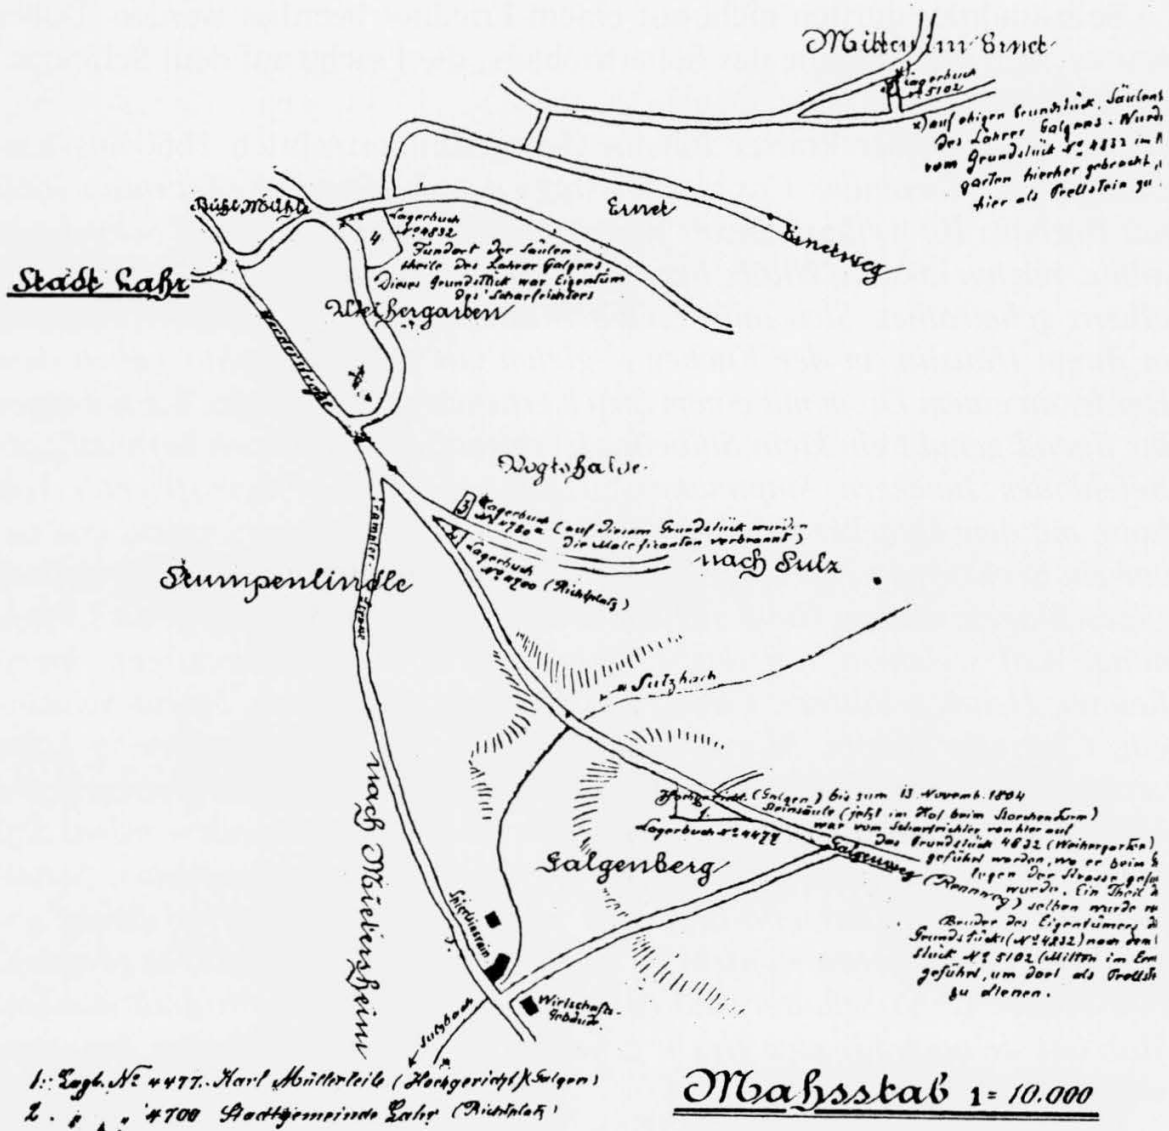 Mitten im Ernet
Lagerbuch
Nº 5102
x) auf obigen Grundstück, Säulenst
des Lahrer Galgens. Wurd
vom Grundstück Nº 4832 im
garten hierher gebracht,
hier als Prellstein zu
Ernet
Ernetweg
Stadt Lahr
Lagerbuch
Nº 4832
4
Fundort der Säulen-
theile des Lahrer Galgens
Dieses Grundstück war Eigentum
des Scharfrichters
Weihergarten
Vogtshalde
3
Lagerbuch
(auf diesem Grundstück wurden
die Malefikanten verbrannt)
nach Sulz
2
Lagerbuch
Nº 4700 (Richtplatz)
Stumpenlindle
Sulzbach
Hochgericht (Galgen) bis zum 13. Novemb. 1804
Steinsäule (jetzt im Hof beim Storchenturm)
war vom Scharfrichter von hier auf
das Grundstück 4832 (Weihergarten)
geführt worden, wo er beim
legen der Strasse gefu
wurde. Ein Theil
selben wurde
Bruder des Eigentümers
Grundstücks (Nº 4832) nach dem
stück Nº 5102 (Mitten im Ern
geführt, um dort als Prellst
zu dienen.
1.
Lagerbuch Nº 4477
Galgenweg
Galgenberg
nach Mietersheim
Wirtschafts
Gebäude
Sulzbach
1. Lagb. Nº 4477. Karl Müllerleile (Hochgericht) (Galgen)
2. " " 4700 Stadtgemeinde Lahr (Richtplatz)
Mahsstab 1 = 10.000